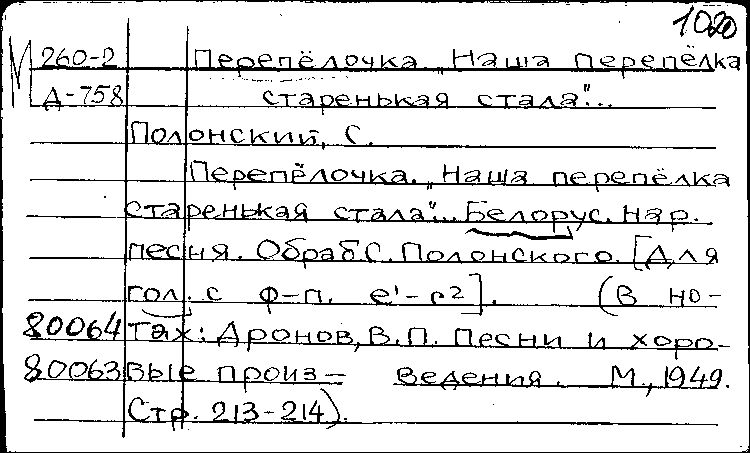 1020
М 260-2 Перепёлочка. „Наша перепёлка
Д-758 старенькая стала"...
Полонский, С.
Перепёлочка. „Наша перепёлка
старенькая стала"... Белорус. нар.
песня. Обраб. С. Полонского. [Для
гол. с ф-п. e¹-c²]. (В но-
80064 тах: Дронов, В.П. Песни и хоро-
80063 вые произ- ведения. М., 1949.
Стр. 213-214).